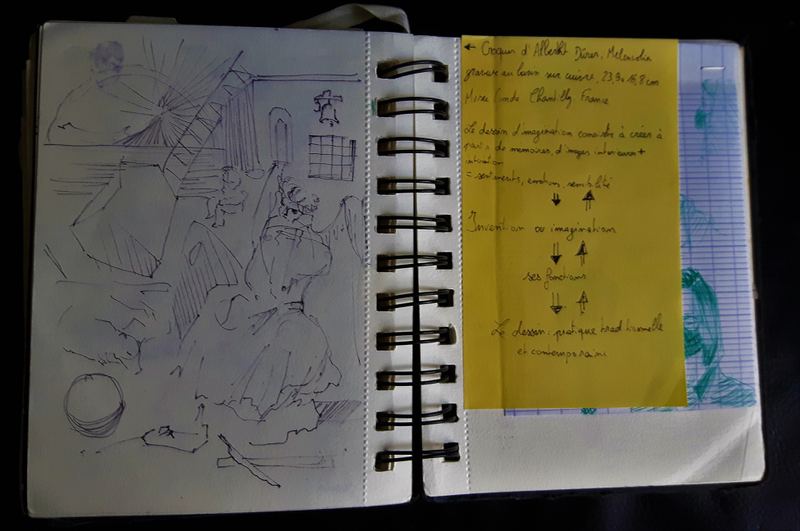 ← Croquis d'Albert Dürer, Melencolia
gravure au burin sur cuivre, 23,9 x 16,8 cm
Musée Condé Chantilly France
Le dessin d'imagination consiste à créer à
partir de memoires, d'images interieures +
intuition
= sentiments, emotion, sensibilité
⇓ ⇑
Invention ou imaginations
⇓ ⇑
ses fonctions
⇓ ⇑
Le dessin : pratique traditionnelle
et contemporaine